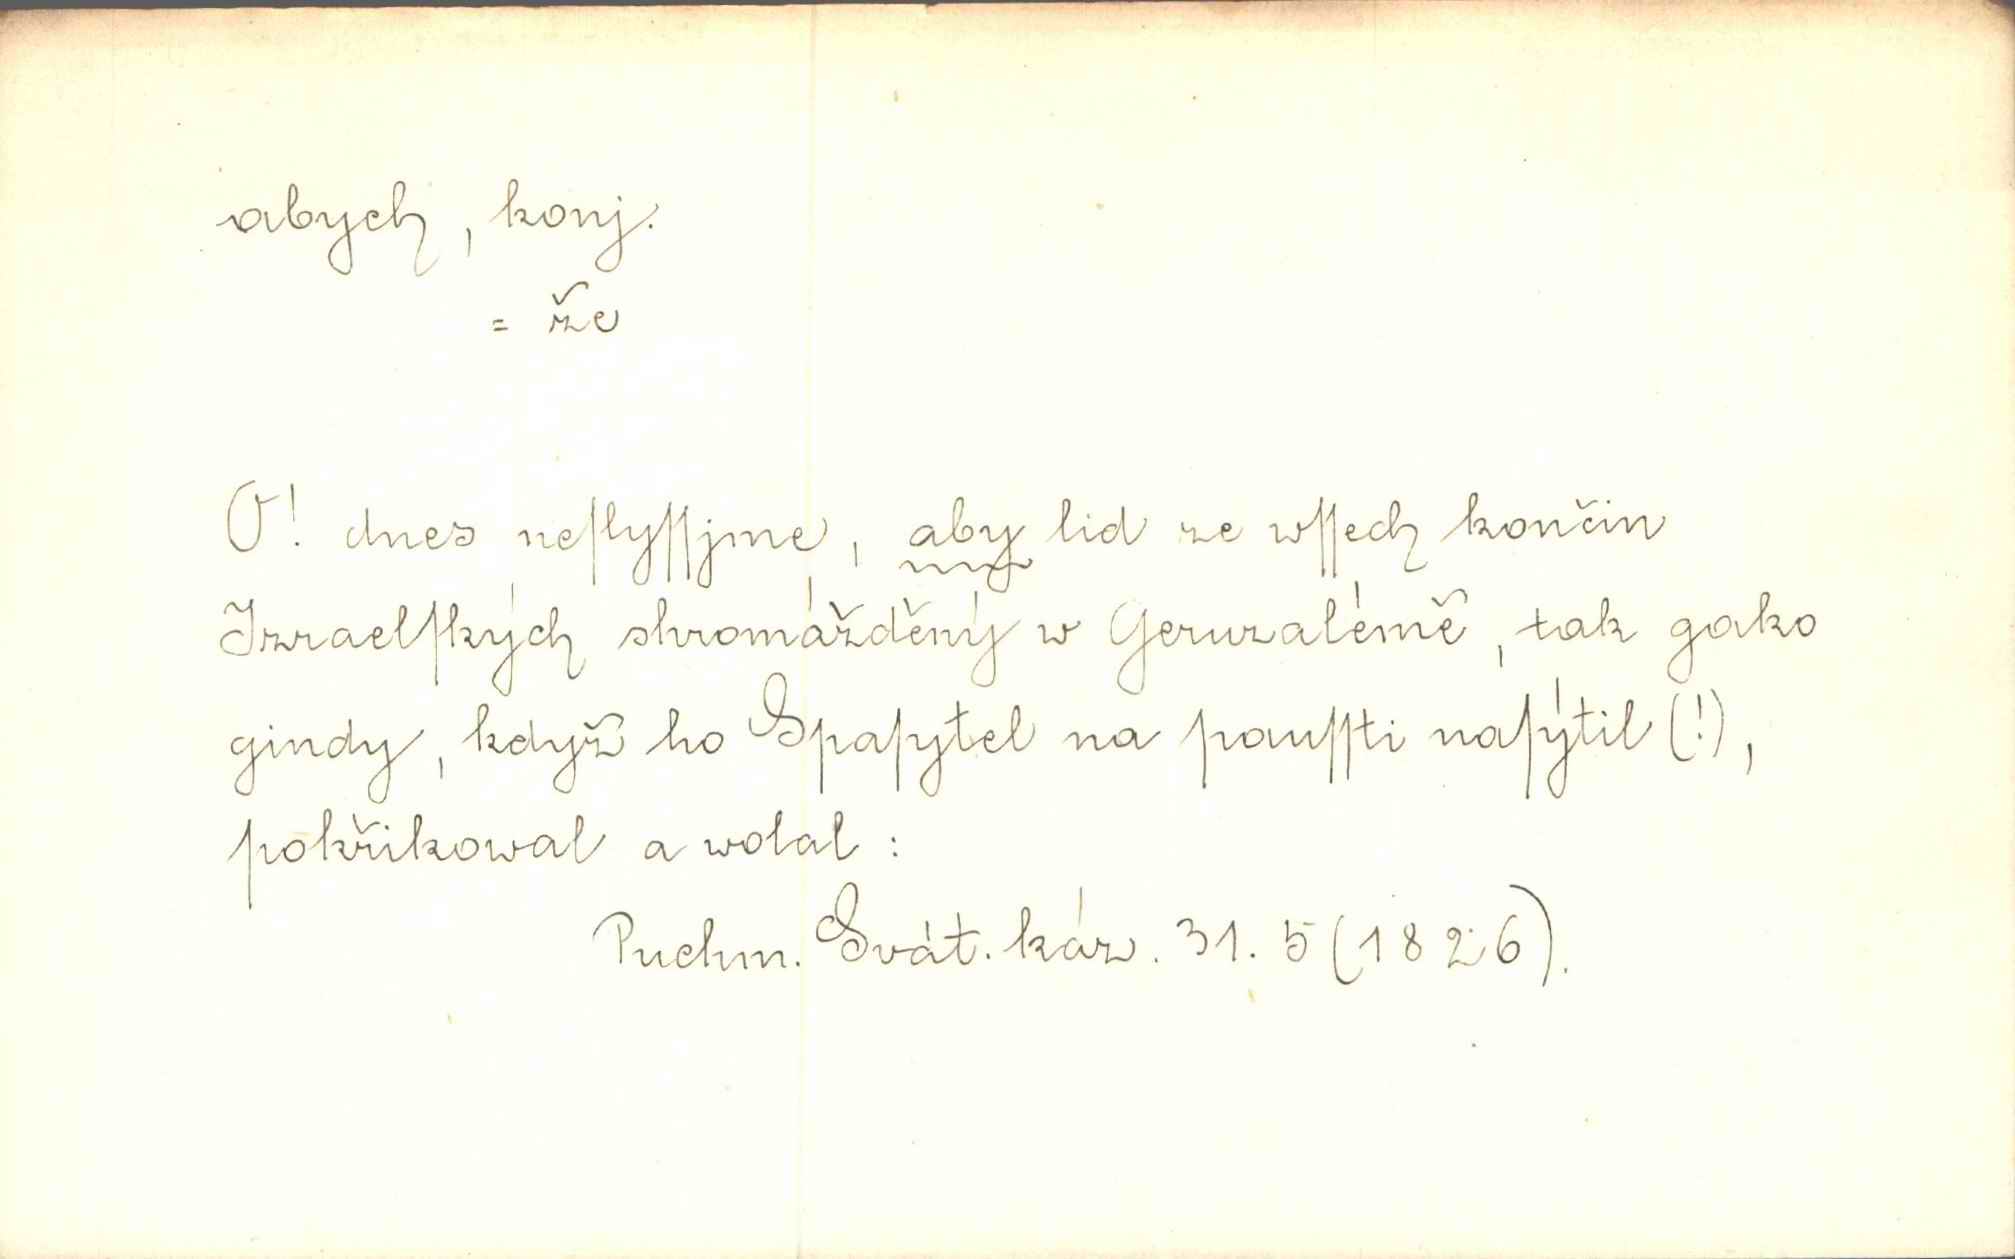 abych, konj.
= že
O! dnes neſlyſſjme, aby lid ze wſſech končin
Izraelſkých shromážděný w Geruzalémě, tak gako
gindy, když ho Spaſytel na pauſſti naſýtil (!),
pokřikowal a wolal:
Puchm. Svát. káz. 31. 5 (1826).